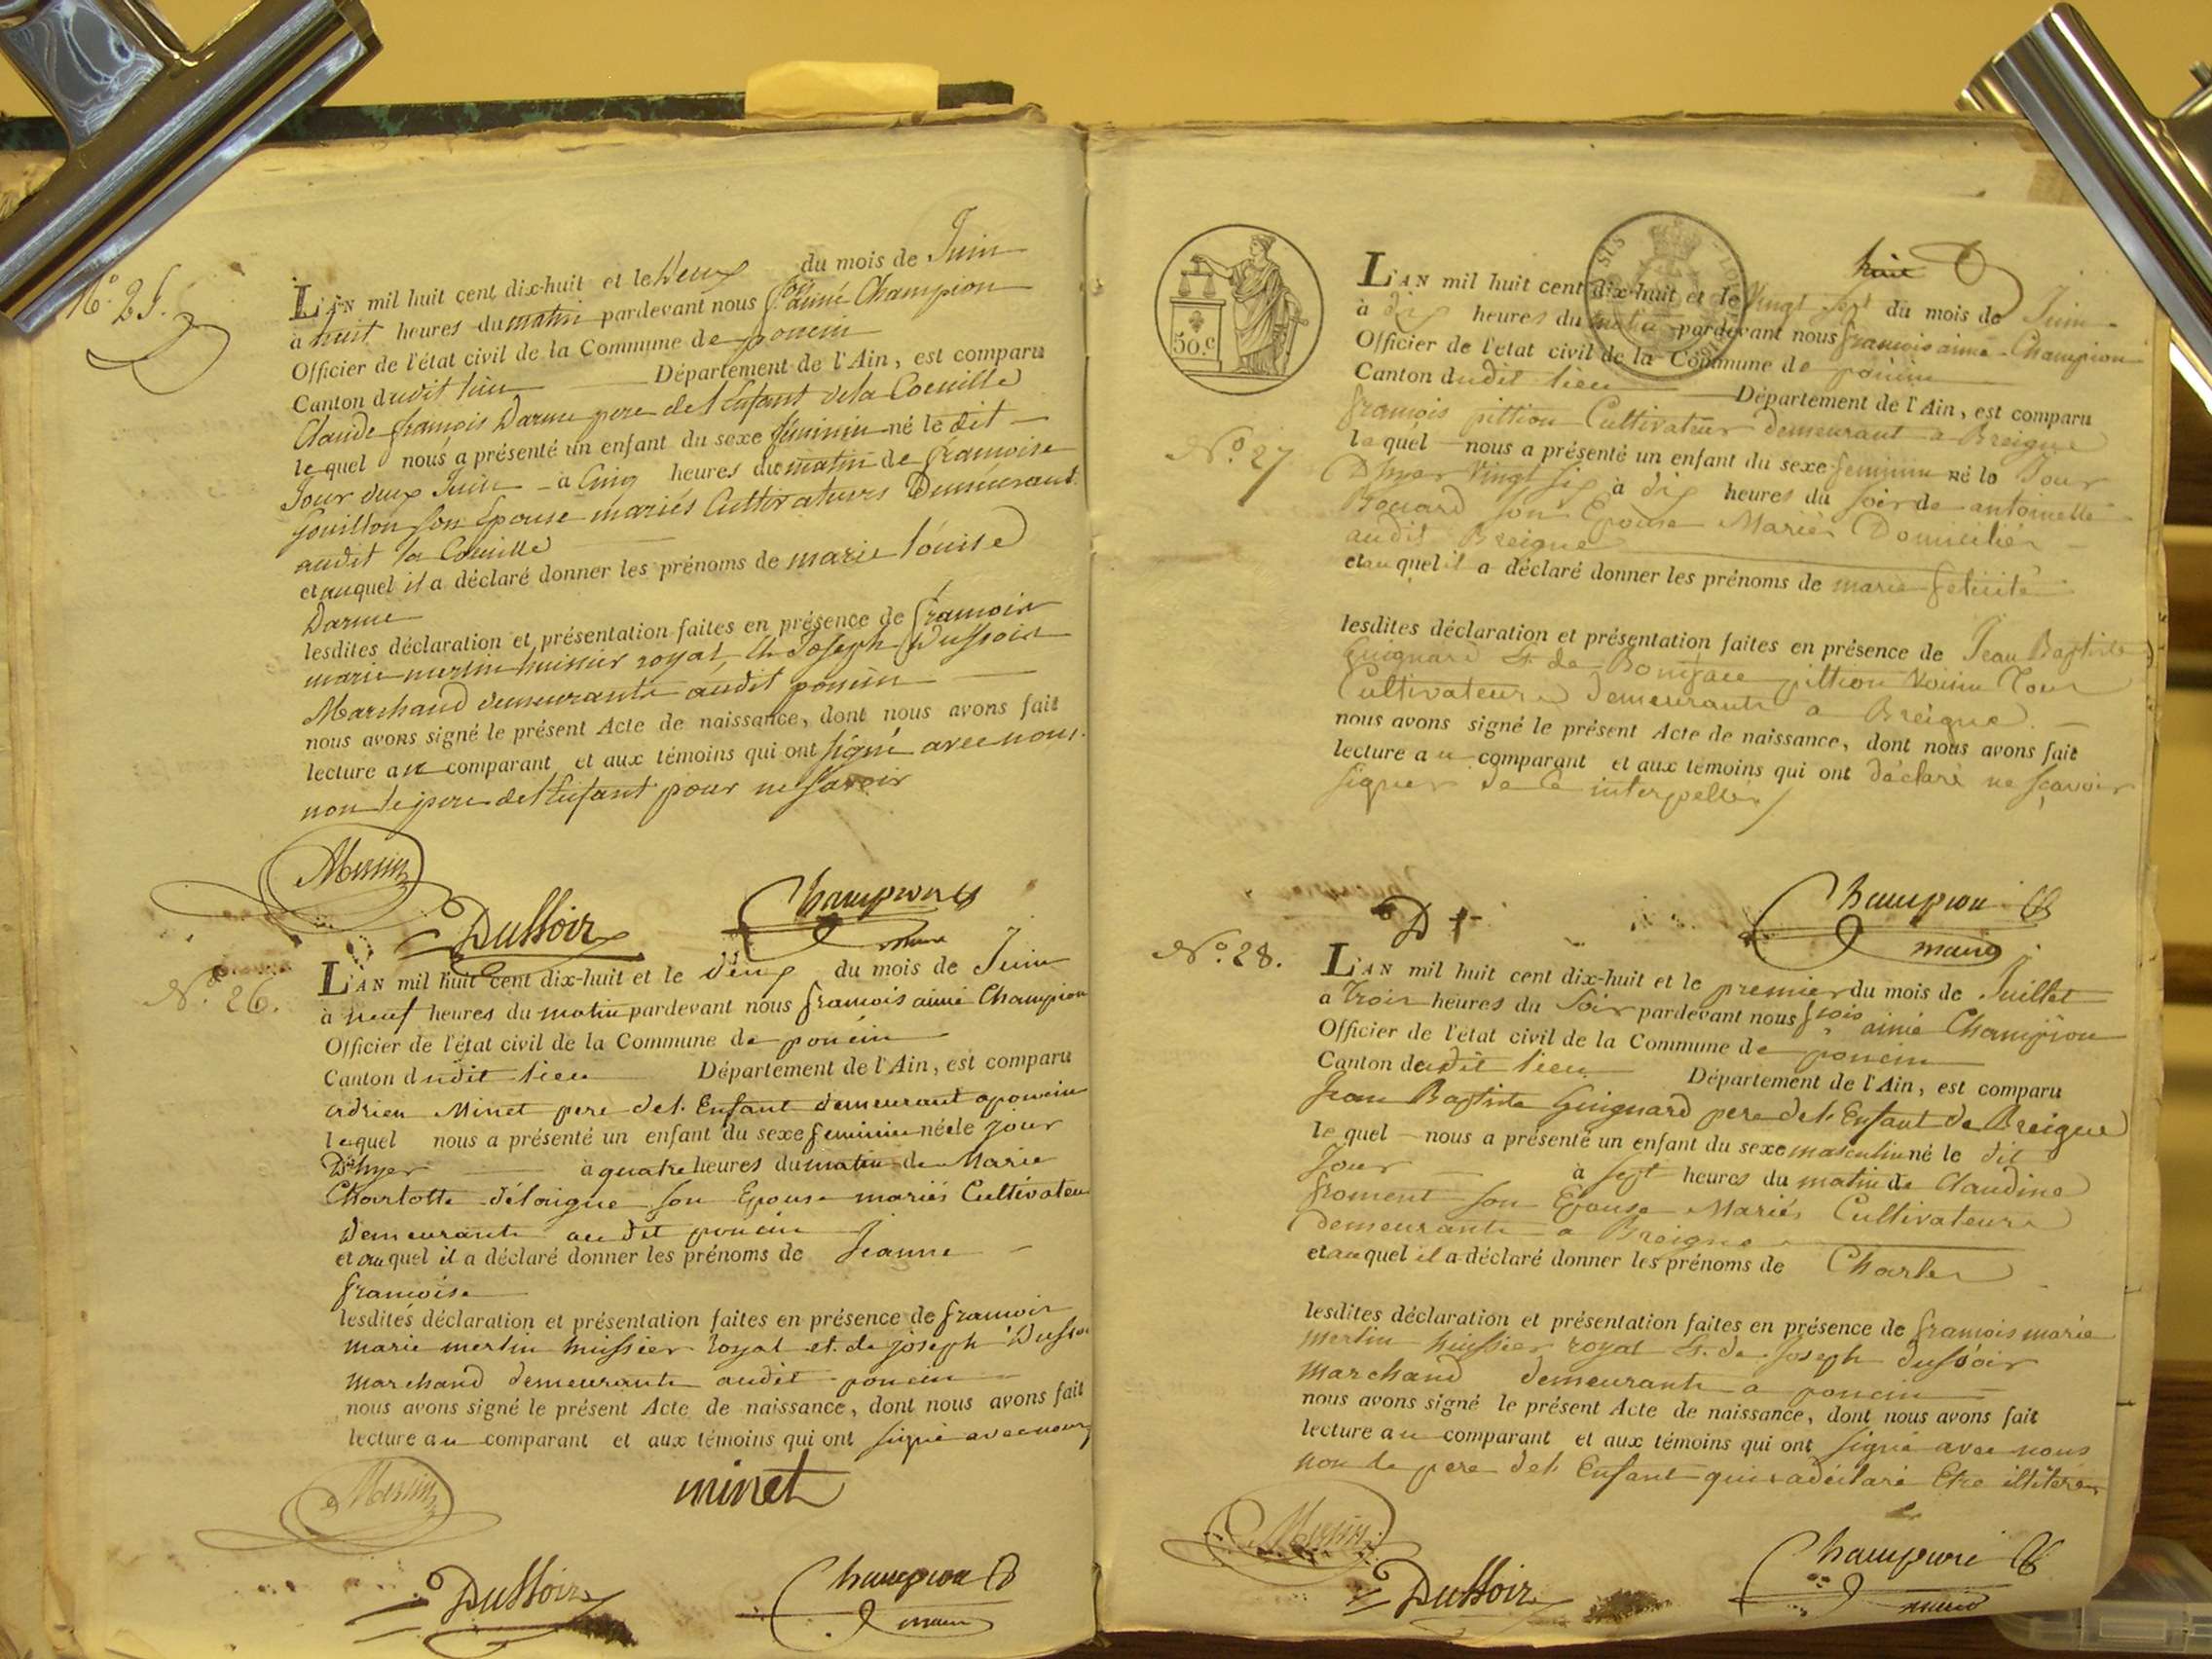 N.o 25.
L'AN mil huit cent dix-huit et le deux du mois de Juin
à huit heures du matin pardevant nous f.ois aimé Champion
Officier de l'état civil de la Commune de poncin
Canton dudit lieu Département de l'Ain, est comparu
Claude françois Darme pere del Enfant dela Coeuille
lequel nous a présenté un enfant du sexe féminin né le dit
Jour deux Juin à Cinq heures du matin de françoise
son Epouse mariés Cultivateurs Demeurant
audit la Coeuille
et auquel il a déclaré donner les prénoms de marie louise
Darme
lesdites déclaration et présentation faites en présence de françois
marie merlin huissier royal Et Joseph Dussoir
Marchand demeurants audit poncin
nous avons signé le présent Acte de naissance, dont nous avons fait
lecture au comparant et aux témoins qui ont signé avec nous
non le pere del Enfant pour ne savoir
Merlin
Dussoir
Champion
maire
N.o 26.
L'AN mil huit cent dix-huit et le deux du mois de Juin
à neuf heures du matin pardevant nous françois aimé Champion
Officier de l'état civil de la Commune de poncin
Canton dudit lieu Département de l'Ain, est comparu
adrien Minet pere del. Enfant demeurant a poncin
lequel nous a présenté un enfant du sexe feminin né le jour
D'hyer à quatre heures du matin de Marie
Charlotte son Epouse mariés Cultivateur
Demeurants audit poncin
et auquel il a déclaré donner les prénoms de Jeanne
françoise
lesdites déclaration et présentation faites en présence de françois
marie merlin huissier royal et de joseph Dussoir
marchand demeurants audit poncin
nous avons signé le présent Acte de naissance, dont nous avons fait
lecture au comparant et aux témoins qui ont signé avec nous
Merlin
minet
Dussoir
Champion
maire
50.c
huit
L'AN mil huit cent dix-huit et le Vingt sept du mois de Juin
à dix heures du matin pardevant nous françois aimé Champion
Officier de l'etat civil de la Commune de poncin
Canton dudit lieu Département de l'Ain, est comparu
françois pittion Cultivateur demeurant a Breigne
N.o 27
lequel nous a présenté un enfant du sexe feminin né le Jour
D'hyer Vingt six à dix heures du soir de antoinette
son Epouse Mariés Domiciliés
audit Breigne
et auquel il a déclaré donner les prénoms de marie felicité
lesdites déclaration et présentation faites en présence de Jean Baptiste
Guignard Et de Boniface pittion
Cultivateurs demeurants a Breigne
nous avons signé le présent Acte de naissance, dont nous avons fait
lecture au comparant et aux témoins qui ont déclaré ne sçavoir
signer de ce interpellés
Champion
maire
N.o 28.
L'AN mil huit cent dix-huit et le premier du mois de Juillet
à trois heures du Soir pardevant nous f.ois aimé Champion
Officier de l'état civil de la Commune de poncin
Canton dudit lieu Département de l'Ain, est comparu
Jean Baptiste Guignard pere del. Enfant de Breigne
lequel nous a présenté un enfant du sexe masculin né le dit
Jour à sept heures du matin de Claudine
froment son Epouse Mariés Cultivateurs
demeurants a Breigne
et auquel il a déclaré donner les prénoms de Charles
lesdites déclaration et présentation faites en présence de françois marie
merlin huissier royal Et. de Joseph dussoir
marchand demeurants a poncin
nous avons signé le présent Acte de naissance, dont nous avons fait
lecture au comparant et aux témoins qui ont signé avec nous
non le pere del. Enfant qui a déclaré Etre illitéré
Merlin
Dussoir
Champion
maire